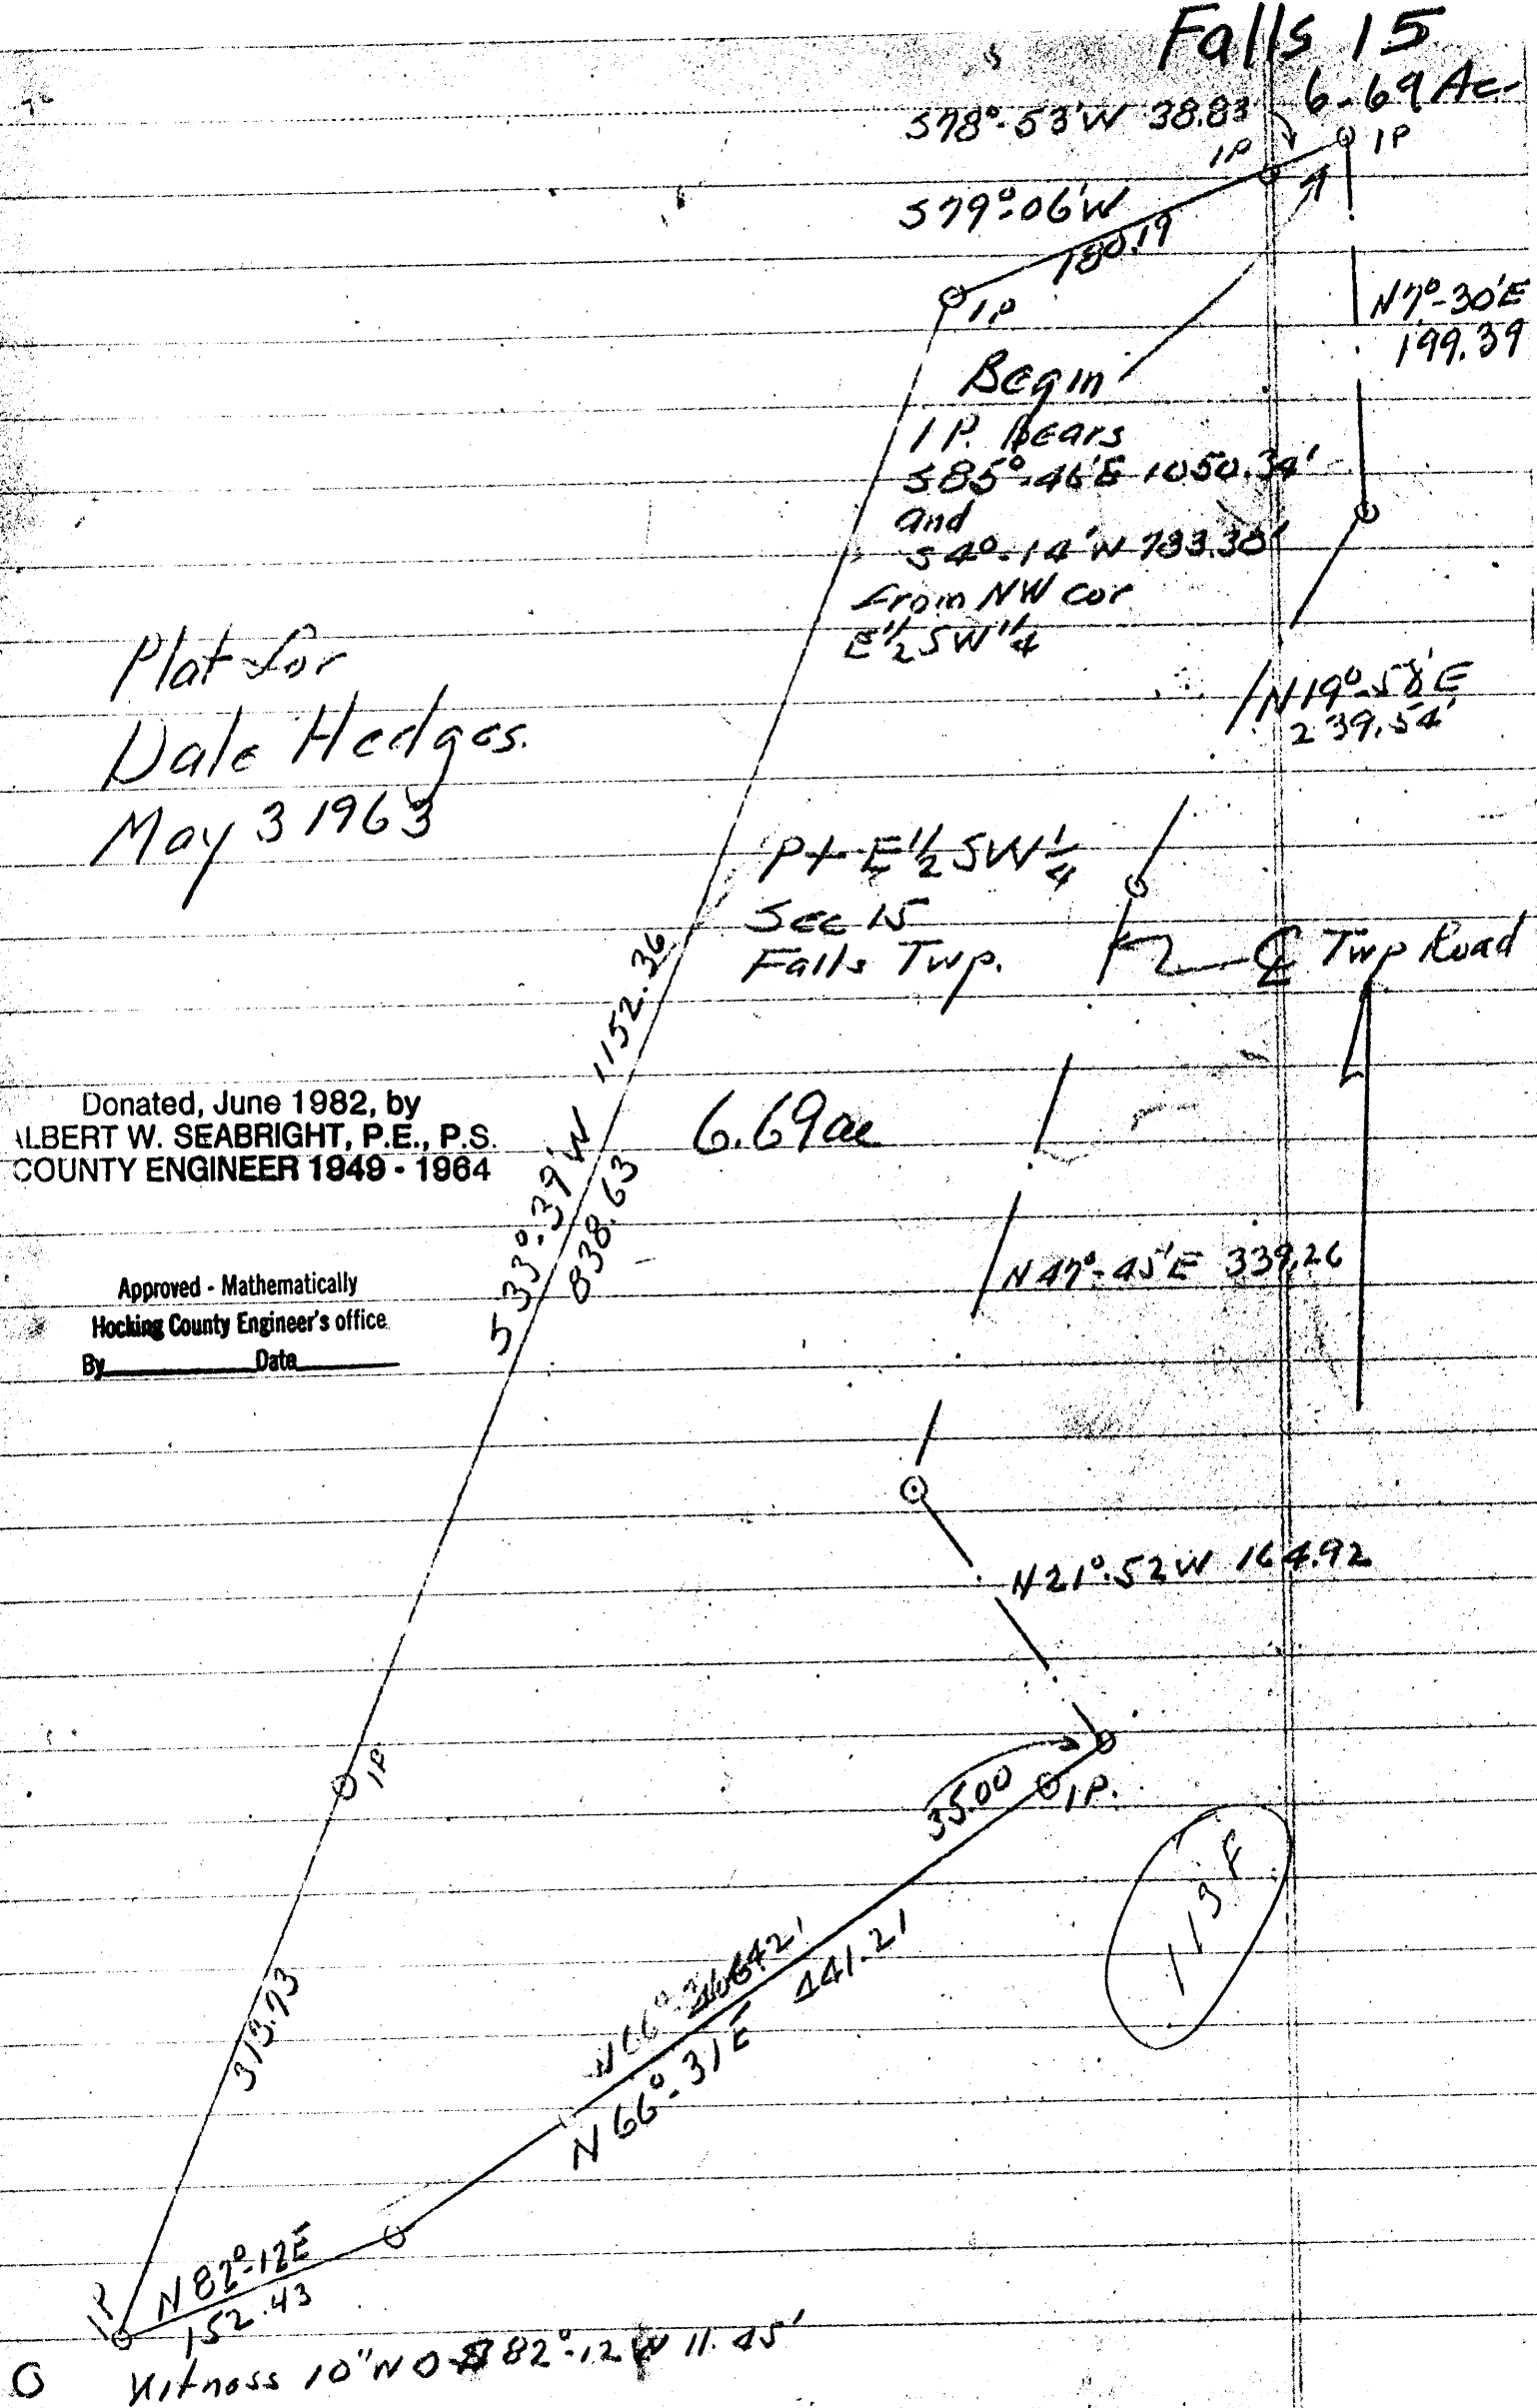 Falls 15
6.69 Ac.
S78°-53'W 38.83
IP
IP
S79°-06'W
180.19
IP
N7°-30'E
199.39
Begin
IP. bears
S85°-46'E 1050.34'
and
S4°-14'W 733.38'
from NW cor
E 1/2 SW 1/4
N19°-58'E
239.54'
Plat for
Dale Hedges.
May 3 1963
Pt E 1/2 SW 1/4
Sec 15
Falls Twp.
℄ Twp Road
S33°-39'W 1152.36
838.63
6.69 ac
Donated, June 1982, by
ALBERT W. SEABRIGHT, P.E., P.S.
COUNTY ENGINEER 1949 - 1964
Approved - Mathematically
Hocking County Engineer's office
By Date
N47°-45'E 339.26
N21°-52W 164.92
IP
35.00
IP.
113F
313.73
N66°-31'E 441.21
IP
N82°-12'E
152.43
Witness 10" N 82°-12 W 11.45'